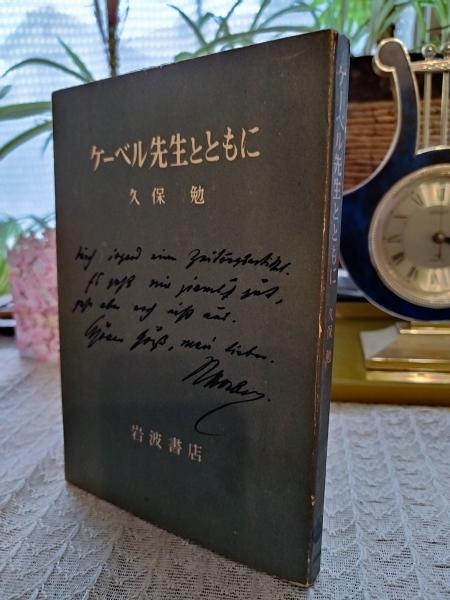 ケーベル先生とともに
久保 勉
mich irgend ein Zeitungsartikel.
Es geht mir ziemlich gut,
geh aber noch nicht aus.
mein Lieber.
岩波書店
ケーベル先生とともに 久保 勉